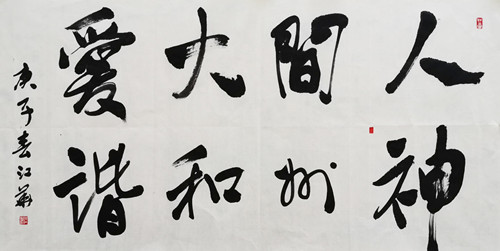 人間大愛
神州和諧
庚子春江華